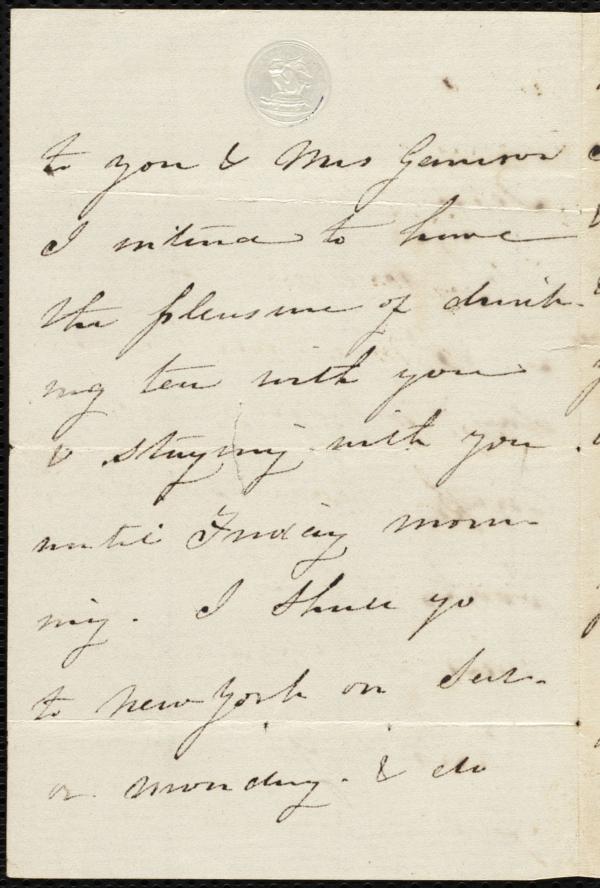 to you & Mrs Garrison
I intend to have
the pleasure of drink-
ing tea with you
& staying with you
until Friday morn-
ing. I shall go
to New York on Sat.
or Monday. & do